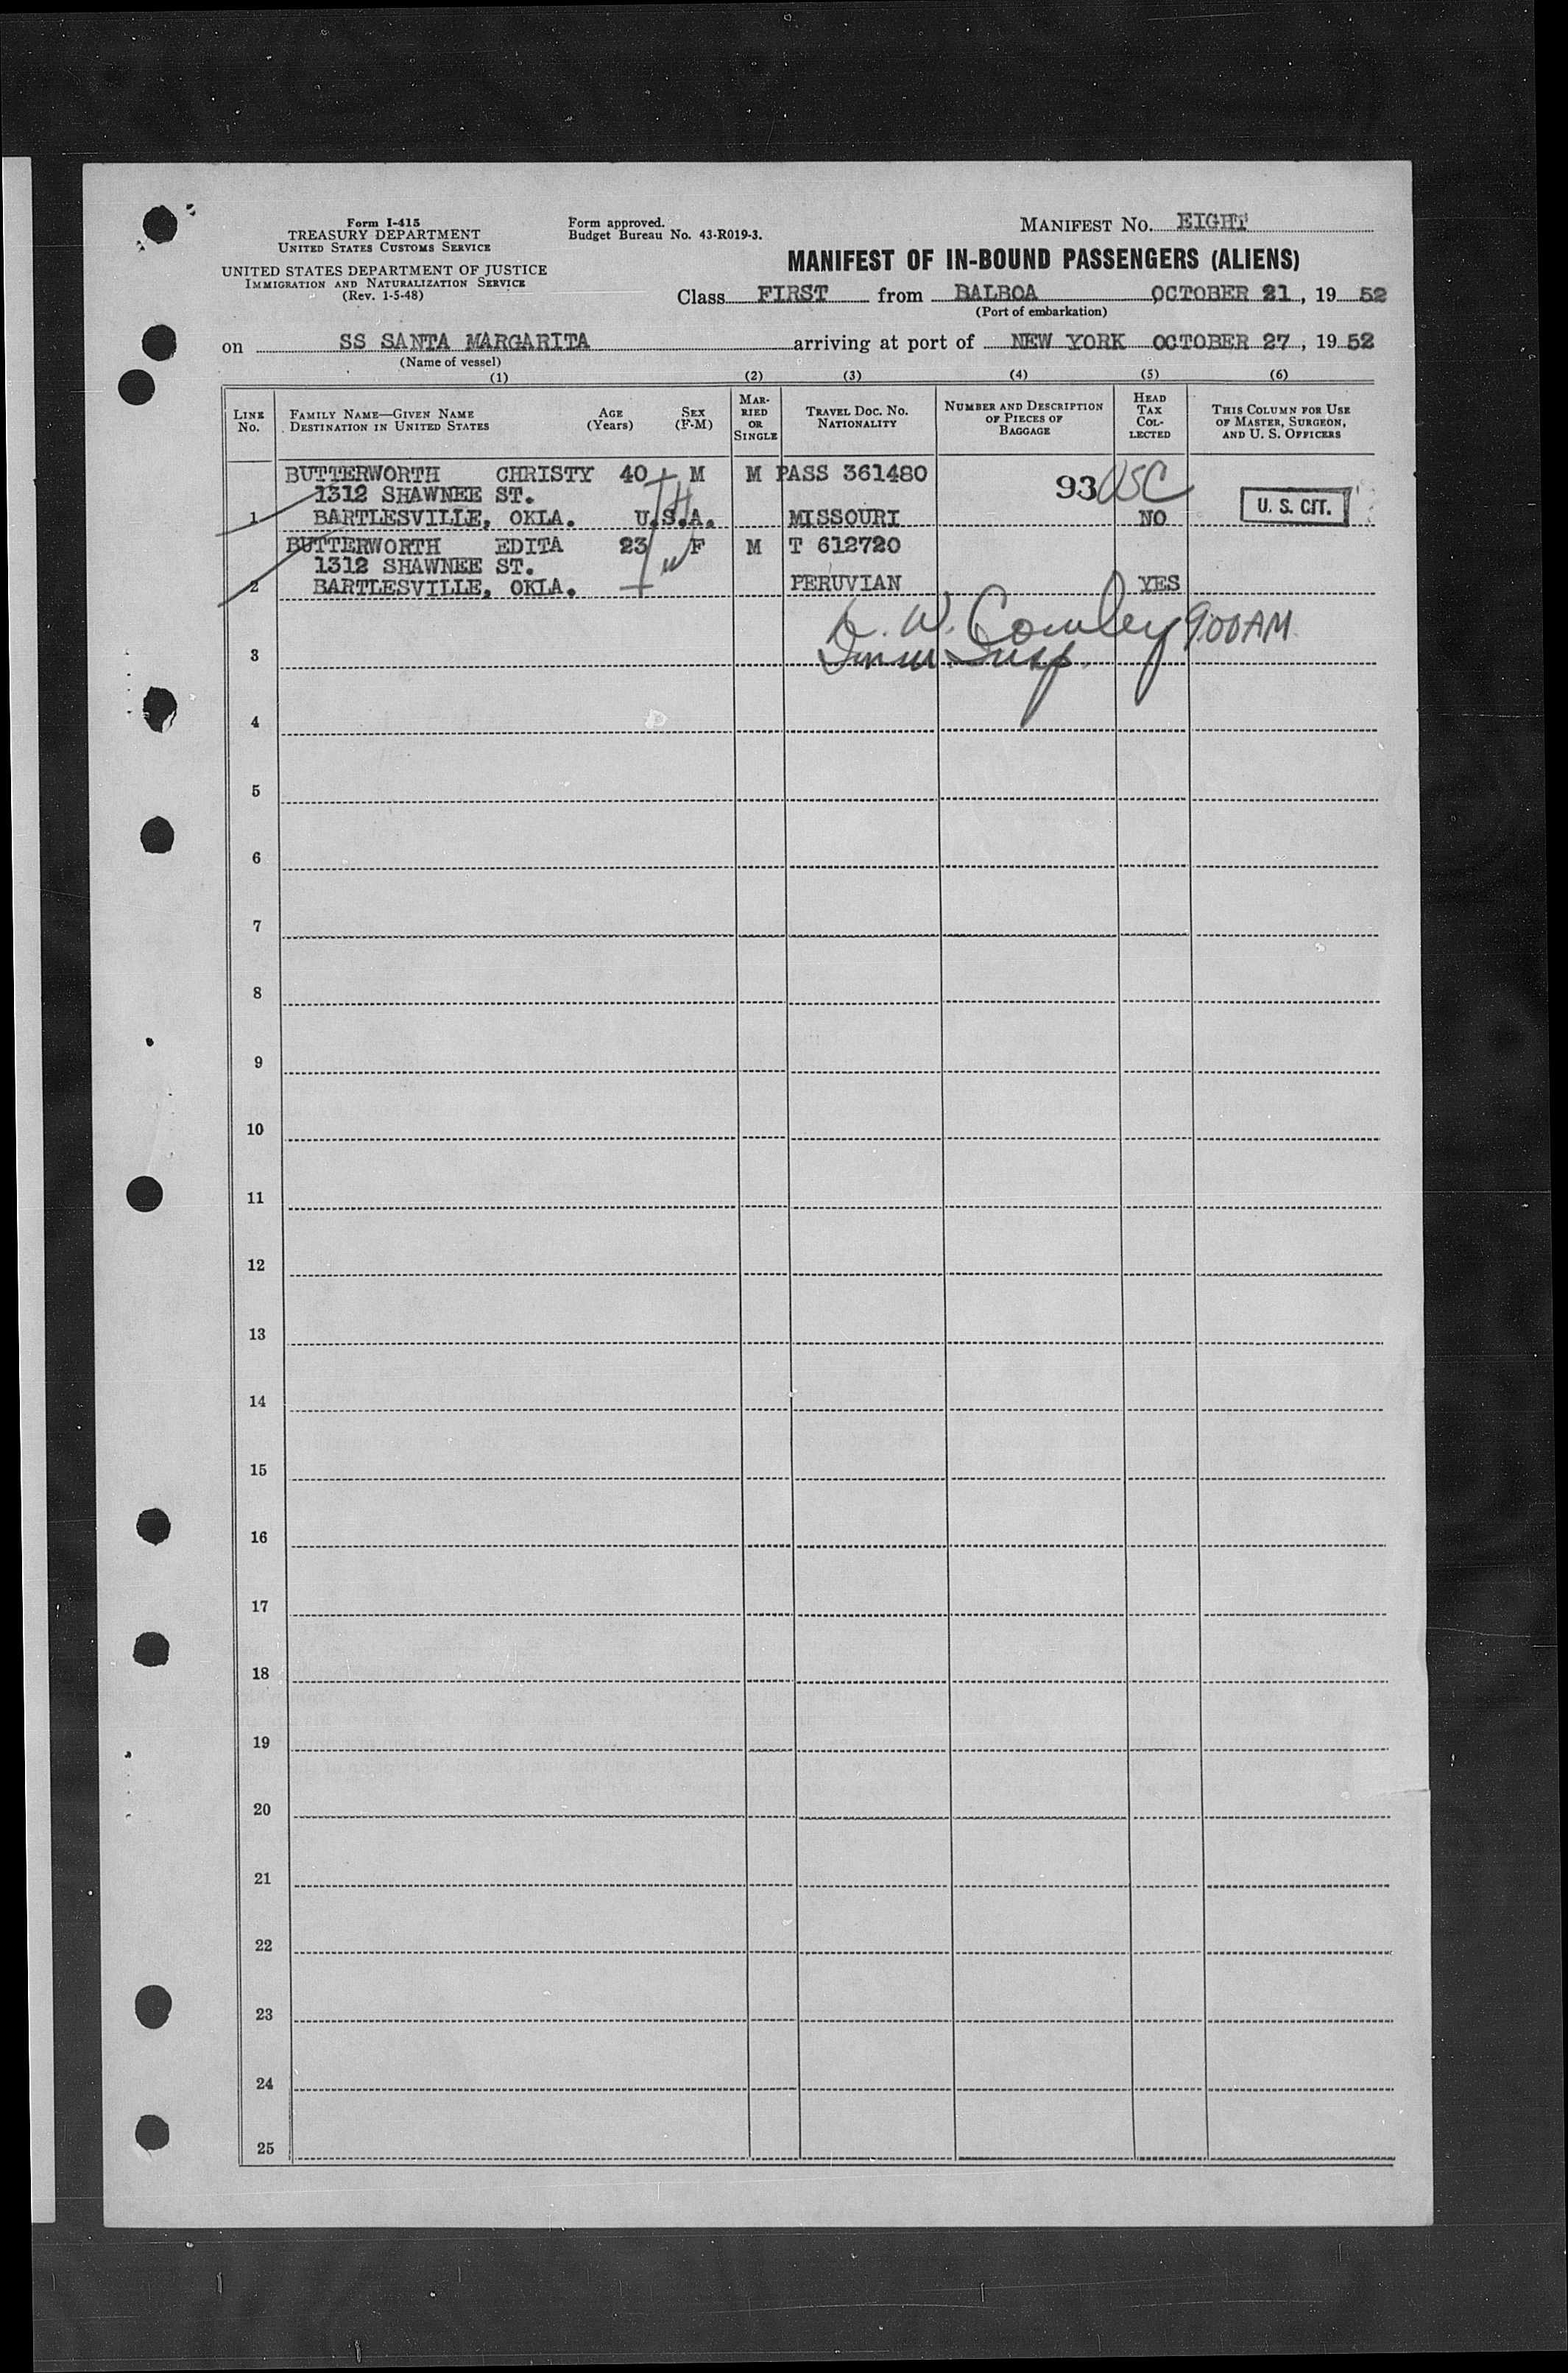 Form I-415
TREASURY DEPARTMENT
UNITED STATES CUSTOMS SERVICE
UNITED STATES DEPARTMENT OF JUSTICE
IMMIGRATION AND NATURALIZATION SERVICE
(Rev. 1-5-48)
Form approved.
Budget Bureau No. 43-R019-3.
MANIFEST NO. EIGHT
MANIFEST OF IN-BOUND PASSENGERS (ALIENS)
Class FIRST from BALBOA OCTOBER 21, 19 52
(Port of embarkation)
on SS SANTA MARGARITA arriving at port of NEW YORK OCTOBER 27, 19 52
(Name of vessel)
(1) (2) (3) (4) (5) (6)
LINE No.
FAMILY NAME—GIVEN NAME
DESTINATION IN UNITED STATES
AGE (Years)
SEX (F-M)
MARRIED OR SINGLE
TRAVEL DOC. NO. NATIONALITY
NUMBER AND DESCRIPTION OF PIECES OF BAGGAGE
HEAD TAX COLLECTED
THIS COLUMN FOR USE OF MASTER, SURGEON, AND U. S. OFFICERS
BUTTERWORTH CHRISTY 40 M M PASS 361480
1312 SHAWNEE ST. 93 USC
1 BARTLESVILLE, OKLA. U.S.A. MISSOURI NO U. S. CIT.
BUTTERWORTH EDITA 23 F M T 612720
1312 SHAWNEE ST.
2 BARTLESVILLE, OKLA. PERUVIAN YES
W. Cowley 9:00AM
3 Insp.
4
5
6
7
8
9
10
11
12
13
14
15
16
17
18
19
20
21
22
23
24
25